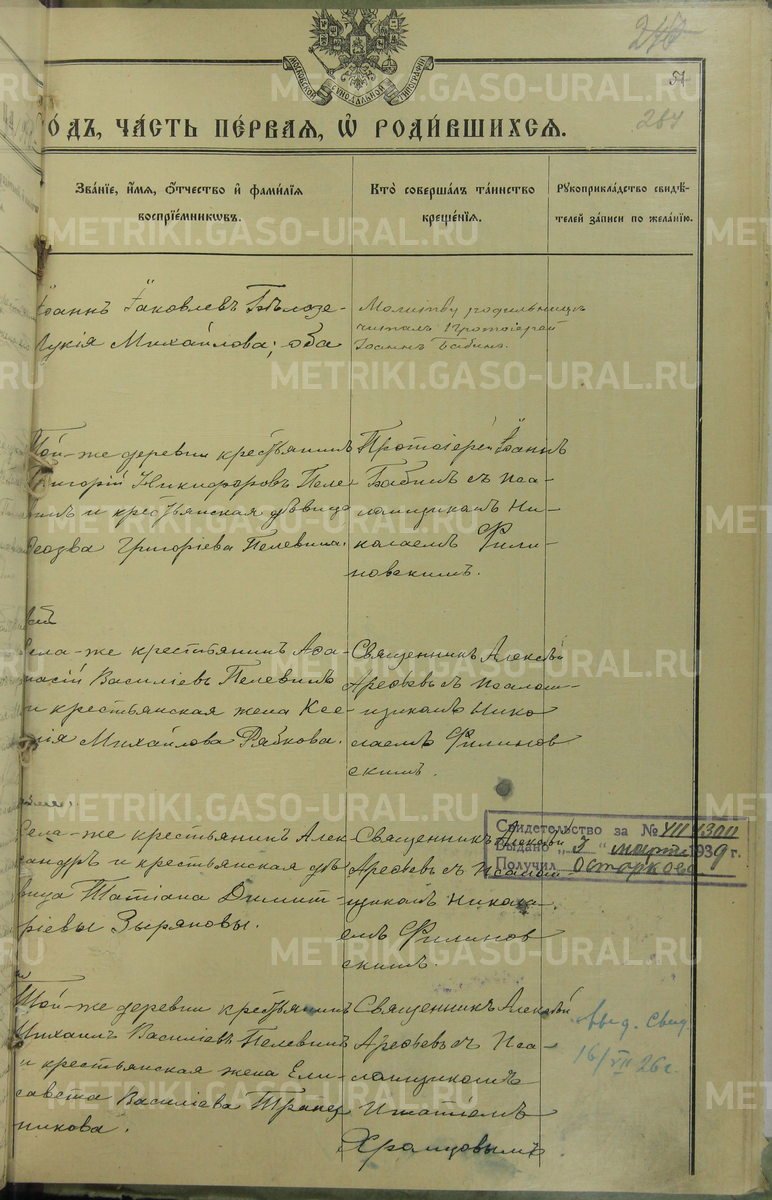 МОСКОВСКОЙ СѴНОДАЛЬНОЙ ТИПОГРАФІИ
51
ОДЪ, ЧАСТЬ ПЕРВАЯ, Ѡ РОДИВШИХСЯ.
284
Званіе, имя, отчество и фамилія воспріемниковъ.
Кто совершалъ таинство крещенія.
Рукоприкладство свидѣтелей записи по желанію.
Іоаннъ Іаковлевъ Бѣлозе-
Лукія Михайлова; оба
Молитву родильницѣ
читалъ Протоіерей
Іоаннъ Бабинъ.
Той-же деревни крестьянинъ
Григорій Никифоровъ Пеле-
винъ и крестьянская дѣвица
Ѳеозва Григоріева Пелевина.
Протоіерей Іоаннъ
Бабинъ съ пса-
ломщикомъ Ни-
колаемъ Фили-
новскимъ.
села-же крестьянинъ Аѳа-
насій Василіевъ Пелевинъ
и крестьянская жена Ксе-
нія Михайлова Рябкова.
Священникъ Алексѣй
Арефьевъ съ псалом-
щикомъ Нико
лаемъ Филинов
скимъ.
Села-же крестьянинъ Алек
сандръ и крестьянская дѣ
вица Татіана Димит-
ріевы Зыряновы.
Священникъ Алексѣй
Арефьевъ съ псалом
щикомъ Никола-
емъ Филинов
скимъ.
Свидетельство за № VIII 4300
Выдано „3" марта 1939 г.
Получил Остаркова
Той-же деревни крестьянинъ
Михаилъ Василіевъ Пелевинъ
и крестьянская жена Ели-
савета Василіева Трапез
никова.
Священникъ Алексѣй
Арефьевъ съ Пса-
ломщикомъ
Игнатіемъ
Храмцовымъ.
выд. свид.
16/VII 26 г.
METRIKI.GASO-URAL.RU